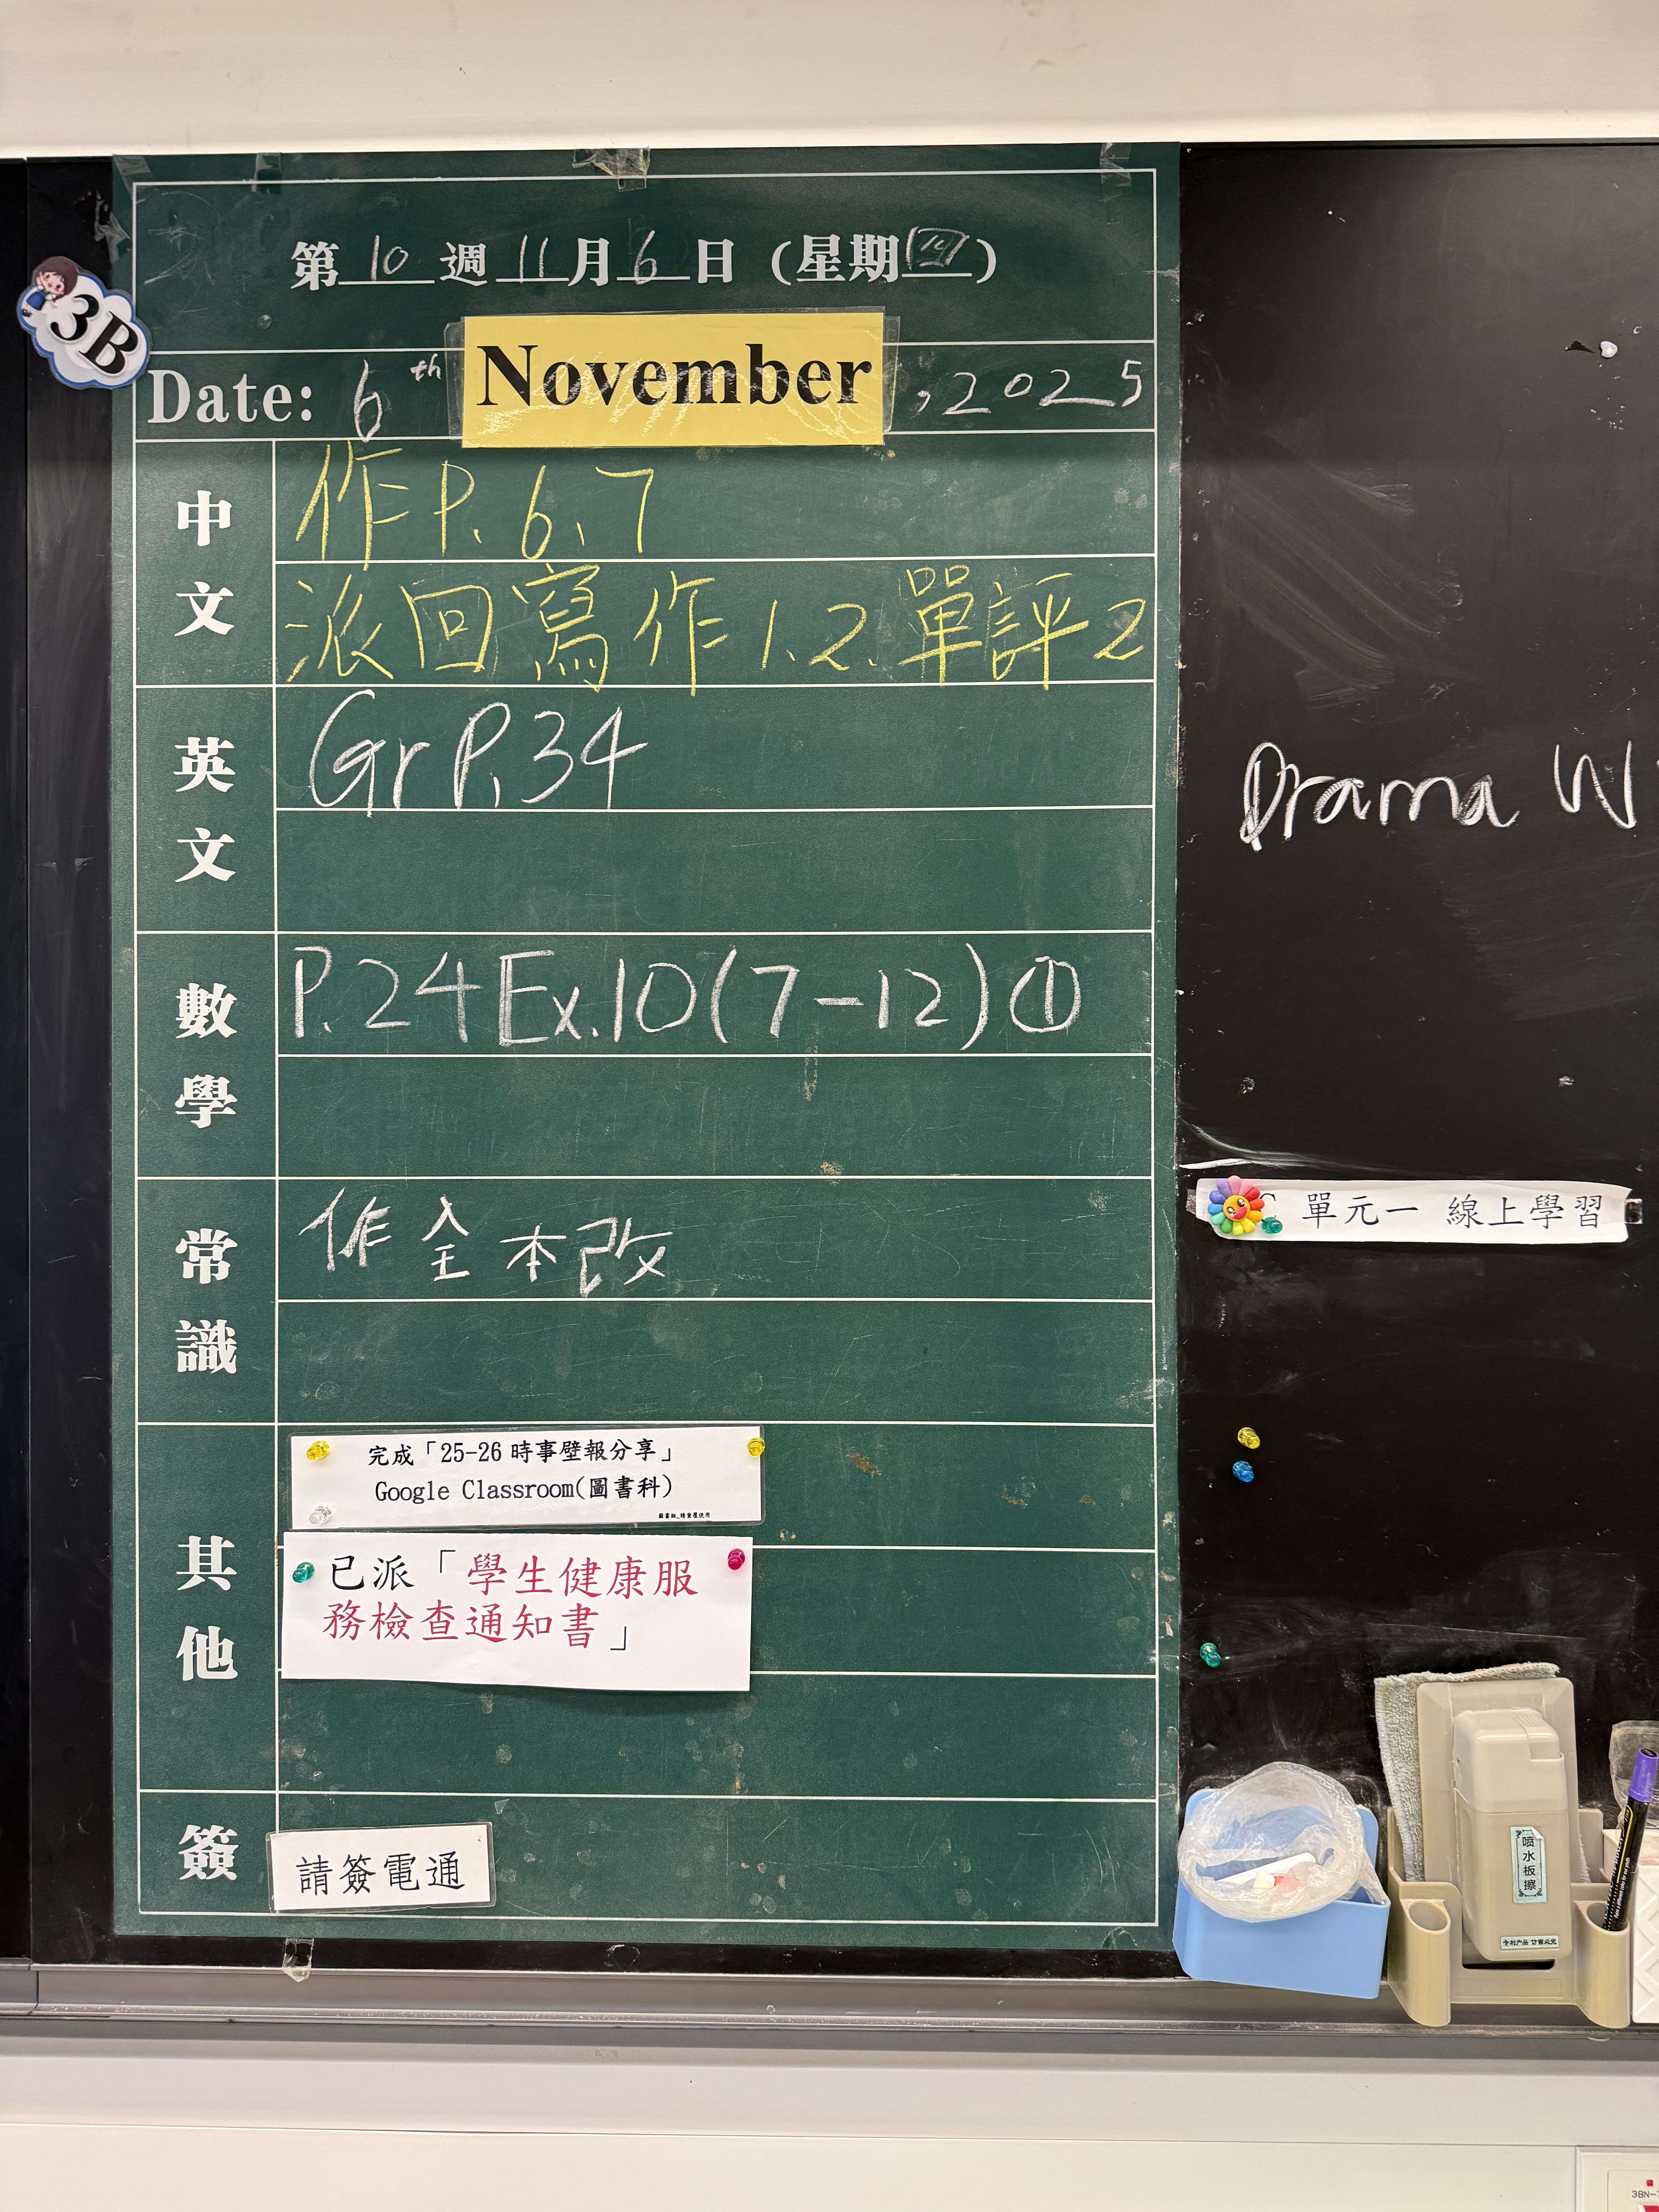 第10週11月6日(星期四)
3B
Date: 6th November, 2025
中文
作P.6、7
派回寫作1.2.單評2
英文
Gr P.34
數學
P.24 Ex.10(7-12)①
常識
作全本改
其他
完成「25-26時事壁報分享」
Google Classroom(圖書科)
圖書組_請重覆使用
已派「學生健康服
務檢查通知書」
簽
請簽電通
Drama W
單元一 線上學習
喷水板擦
专利产品 仿冒必究
3BN-